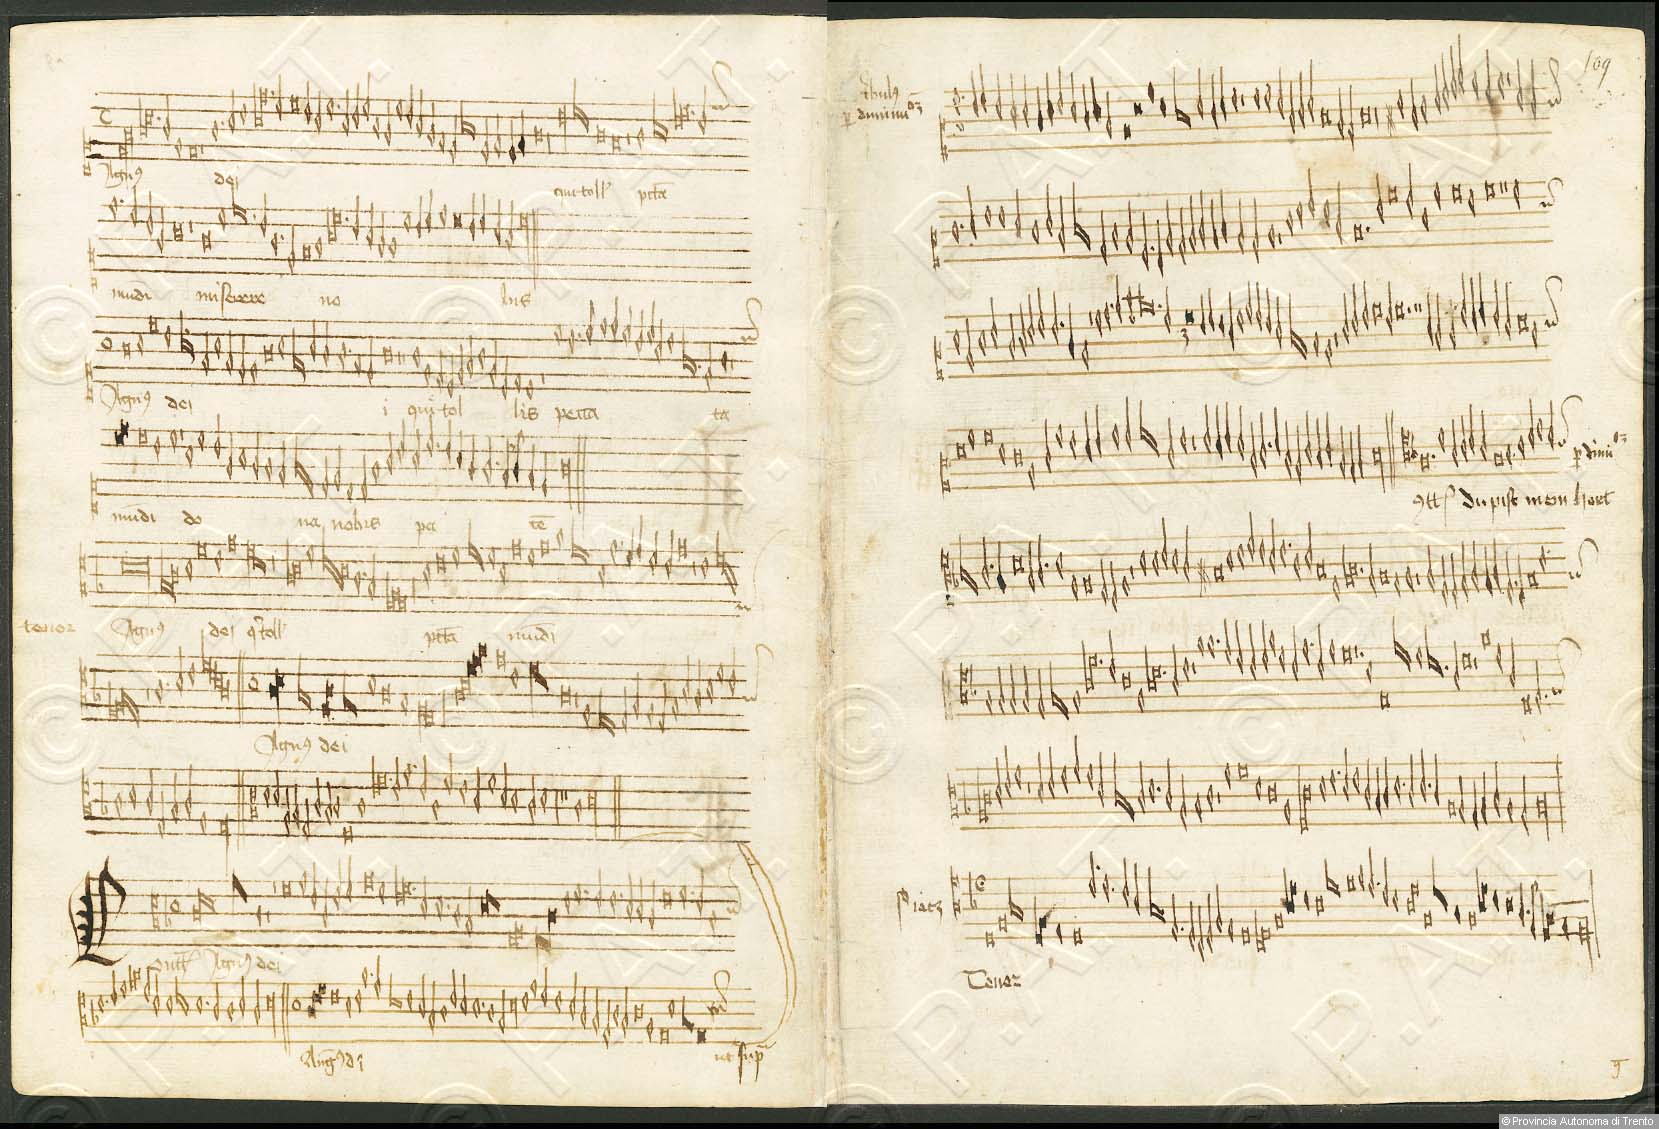 Agnus dei qui toll pctā
mūdi miserere no bis
Agnus dei i qui tol lis pecca ta
mudi do na nobis pa cē
tenor Agnus dei q toll pctā mūdi
Agnus dei
Agnus dei
ut supra
109
p diminu
p dimi
du pist mein hort
Tenor
9
© Provincia Autonoma di Trento